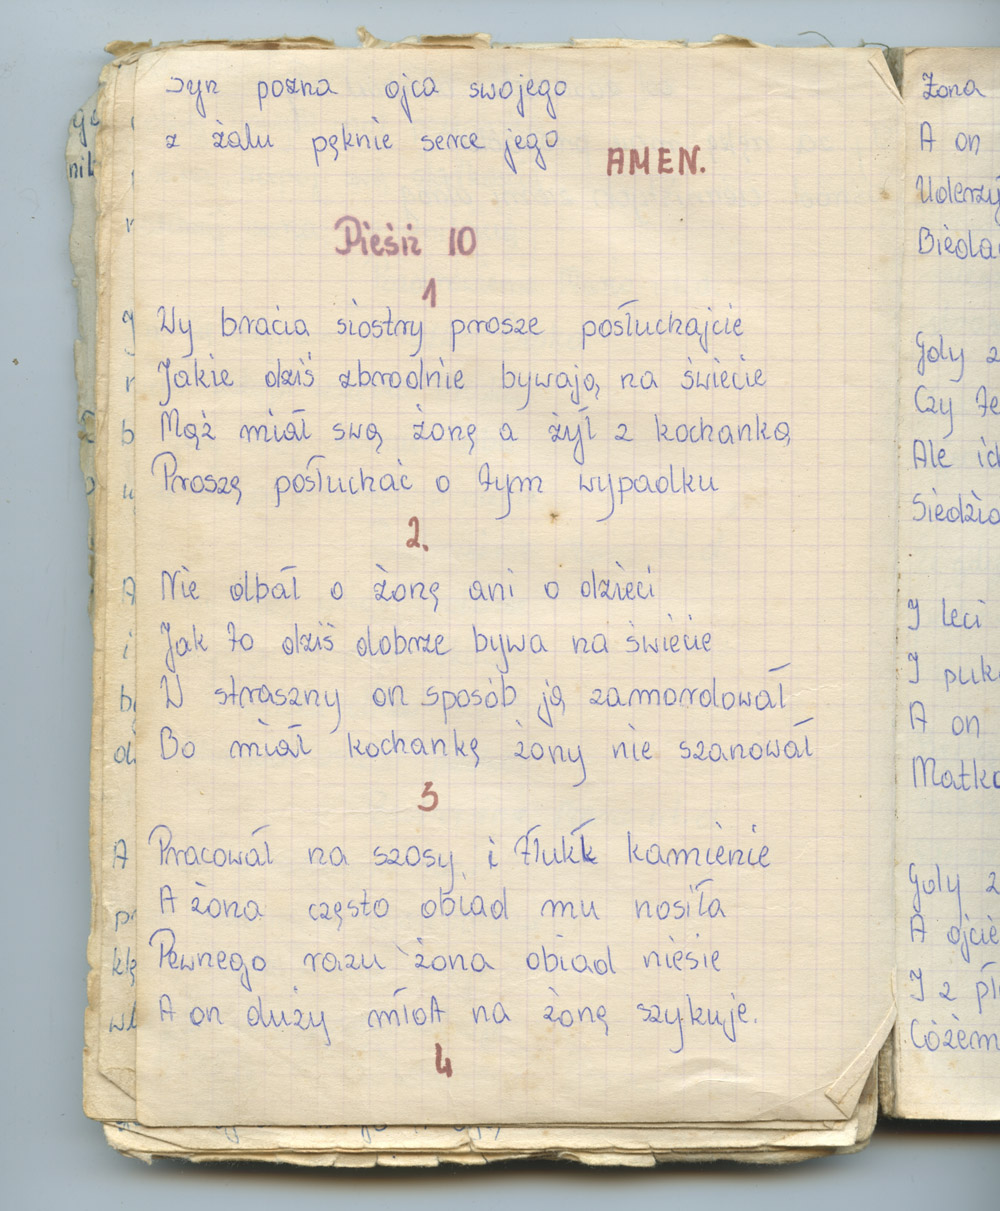 Syn pozna ojca swojego
z żalu pęknie serce jego
AMEN.
Pieśń 10
1
Wy bracia siostry prosze posłuchajcie
Jakie dziś zbrodnie bywają na świecie
Mąż miał swą żonę a żył z kochanką
Proszę posłuchać o tym wypadku
2.
Nie dbał o żonę ani o dzieci
Jak to dziś dobrze bywa na świecie
W straszny on sposób ją zamordował
Bo miał kochankę żony nie szanował
3
Pracował na szosy i tłukł kamienie
A żona często obiad mu nosiła
Pewnego razu żona obiad niesie
A on duży młot na żonę szykuje.
4
Żona
A on
Uderzy
Bieda
Gdy z
Czy te
Ale
Siedzi
I leci
I puk
A on
Matk
Gdy z
A ojcie
I z pł
Cóżem